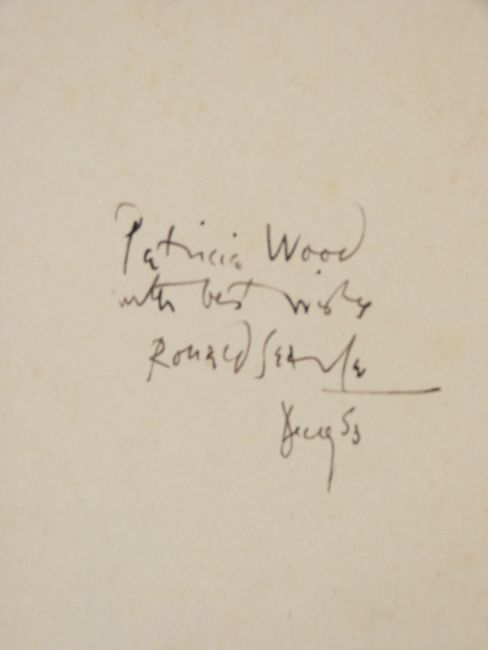 Patricia Wood
with best wishes
Ronald Searle
53